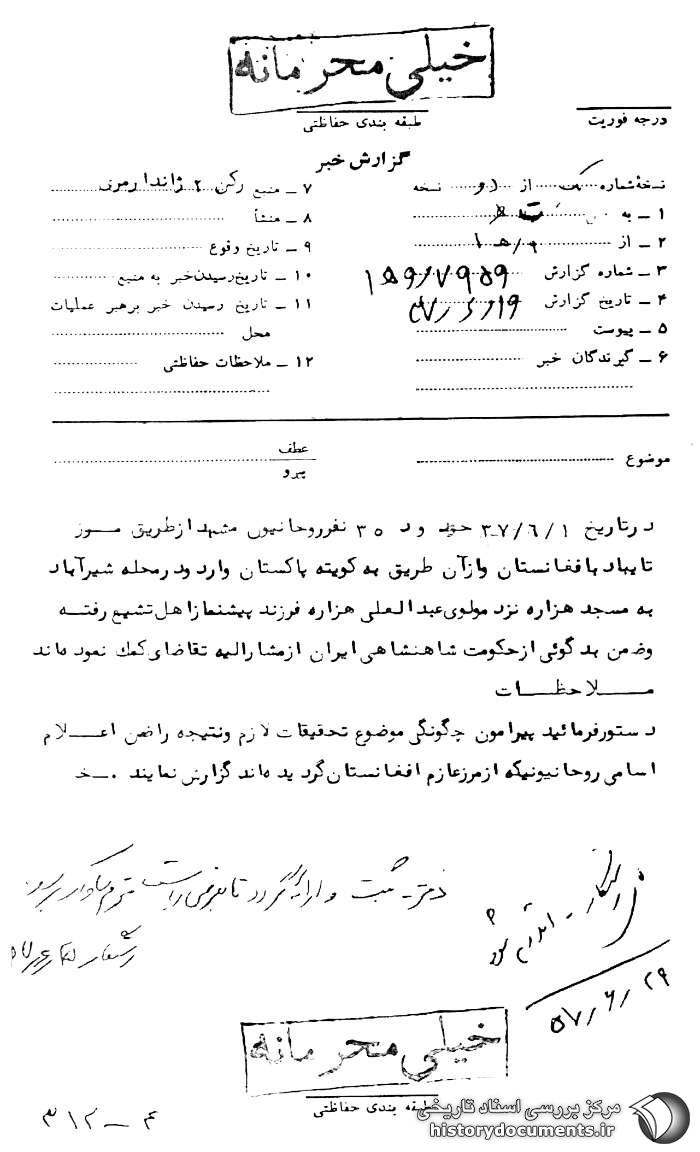 خیلی محرمانه
طبقه بندی حفاظتی
درجه فوریت
گزارش خبر
نسخهٔ شماره یک از نسخه
۱ ـ به
۲ ـ از ۹/ه ۱
۳ ـ شماره گزارش
۴ ـ تاریخ گزارش
۵ ـ پیوست
۶ ـ گیرندگان خبر
۷ ـ منبع رکن ۲ ژاندارمری
۸ ـ منشأ
۹ ـ تاریخ وقوع
۱۰ ـ تاریخ رسیدن خبر به منبع
۱۱ ـ تاریخ رسیدن خبر برهبر عملیات
محل
۱۲ ـ ملاحظات حفاظتی
موضوع
عطف
پیرو
درتاریخ ۳۷/۶/۱ حدود ۳۵ نفرروحانیون مشهد ازطریق مرز
تایباد بافغانستان وازآن طریق به کویته پاکستان وارد ودرمحله شیرآباد
به مسجد هزاره نزد مولوی عبدالعلی هزاره فرزند پیشنمازاهل تشیع رفته
وضمن بدگوئی ازحکومت شاهنشاهی ایران ازمشارالیه تقاضای کمک نموده اند
ملاحظات
دستورفرمائید پیرامون چگونگی موضوع تحقیقات لازم ونتیجه راضمن اعلام
اسامی روحانیونیکه ازمرزعازم افغانستان گردیده اند گزارش نمایند .خ
دفتر ـ ثبت و ارائه گردد تا
اقدام شود
۵۷/۶/۲۹
خیلی محرمانه
طبقه بندی حفاظتی
۳۱۲ــ۴
مرکز بررسی اسناد تاریخی
historydocuments.ir